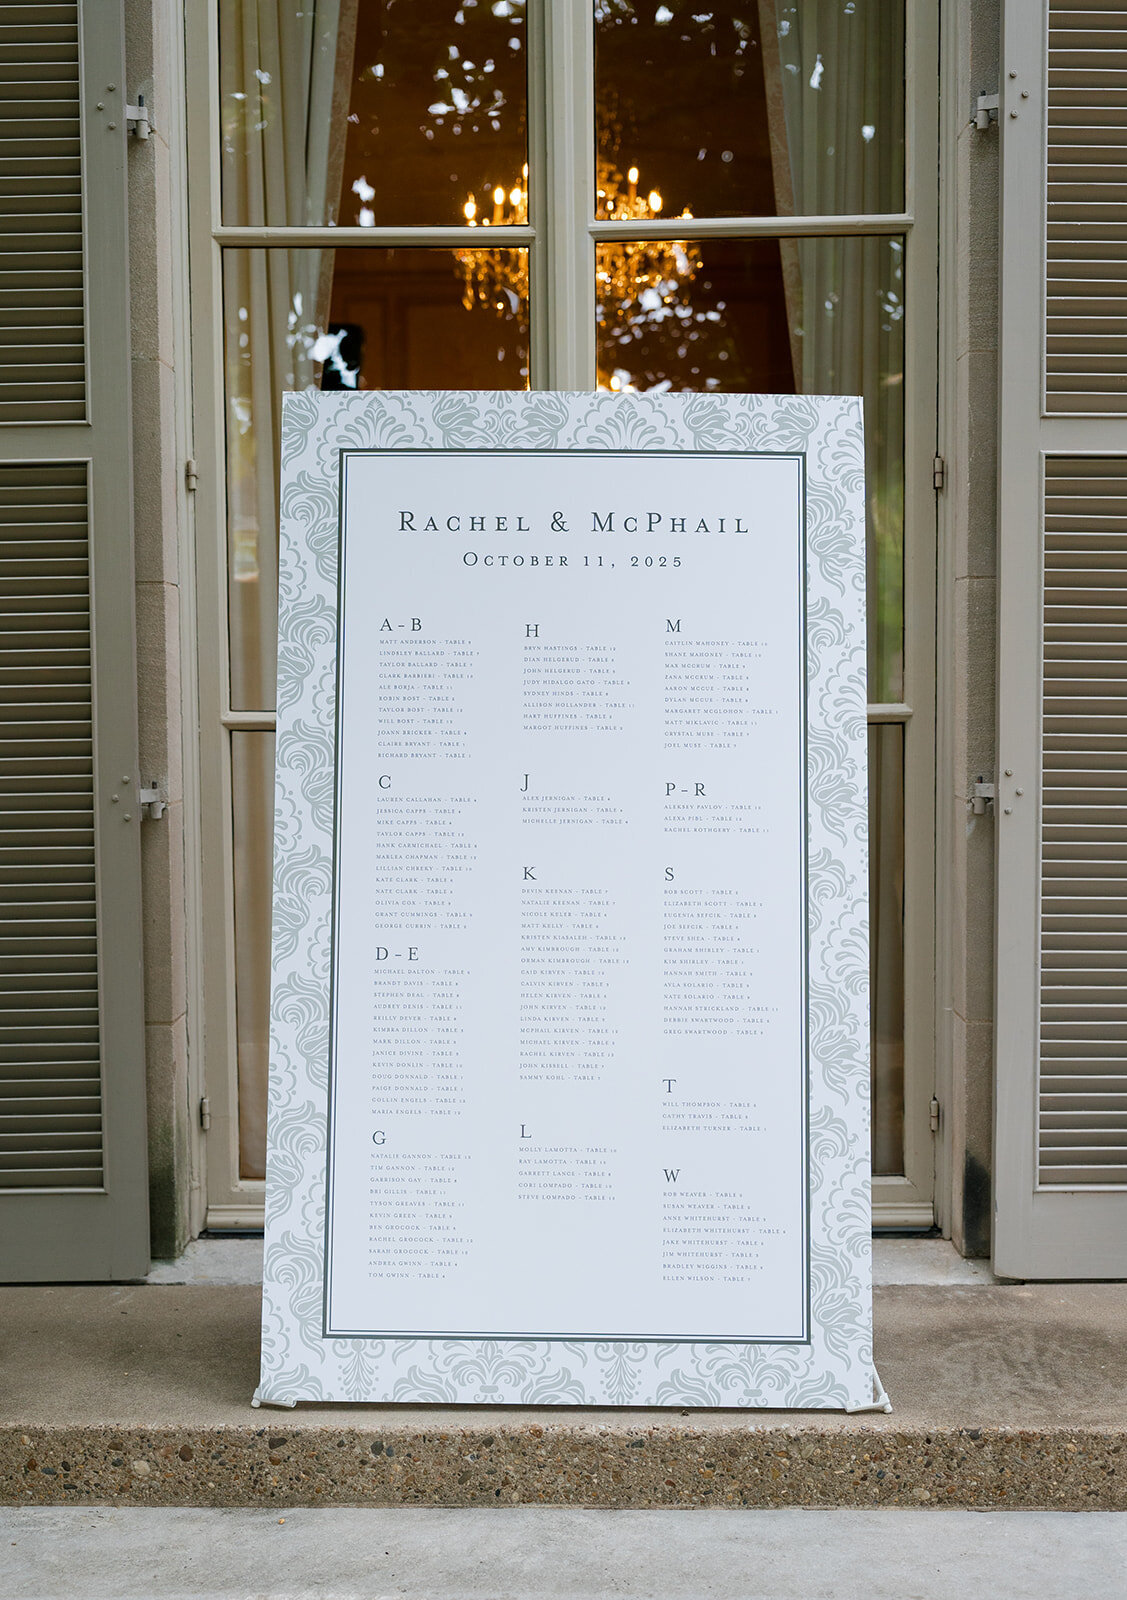 RACHEL & MCPHAIL
OCTOBER 11, 2025
A-B
MATT ANDERSON - TABLE
LINDSLEY BALLARD - TABLE
TAYLOR BALLARD - TABLE
CLARK BARBIERI - TABLE
ALE BORJA - TABLE 11
ROBIN BOST - TABLE
TAYLOR BOST - TABLE
WILL BOST - TABLE
JOANN BRICKER - TABLE
CLAIRE BRYANT - TABLE 1
RICHARD BRYANT - TABLE 1
C
LAUREN CALLAHAN - TABLE
JESSICA CAPPS - TABLE
MIKE CAPPS - TABLE
TAYLOR CAPPS - TABLE
HANK CARMICHAEL - TABLE
MARLEA CHAPMAN - TABLE
LILLIAN CHREKY - TABLE
KATE CLARK - TABLE
NATE CLARK - TABLE
OLIVIA COX - TABLE
GRANT CUMMINGS - TABLE
GEORGE CURRIN - TABLE
D-E
MICHAEL DALTON - TABLE
BRANDT DAVIS - TABLE
STEPHEN DEAL - TABLE
AUDREY DENIS - TABLE 11
REILLY DEVER - TABLE
KIMBRA DILLON - TABLE
MARK DILLON - TABLE
JANICE DIVINE - TABLE
KEVIN DONLIN - TABLE
DOUG DONNALD - TABLE 1
PAIGE DONNALD - TABLE 1
COLLIN ENGELS - TABLE
MARIA ENGELS - TABLE
G
NATALIE GANNON - TABLE
TIM GANNON - TABLE
GARRISON GAY - TABLE
BRI GILLIS - TABLE 11
TYSON GREAVES - TABLE 11
KEVIN GREEN - TABLE
BEN GROCOCK - TABLE
RACHEL GROCOCK - TABLE
SARAH GROCOCK - TABLE
ANDREA GWINN - TABLE
TOM GWINN - TABLE
H
BRYN HASTINGS - TABLE
DIAN HELGERUD - TABLE
JOHN HELGERUD - TABLE
JUDY HIDALGO GATO - TABLE
SYDNEY HINDS - TABLE
ALLISON HOLLANDER - TABLE 11
HART HUFFINES - TABLE
MARGOT HUFFINES - TABLE
J
ALEX JERNIGAN - TABLE
KRISTEN JERNIGAN - TABLE
MICHELLE JERNIGAN - TABLE
K
DEVIN KEENAN - TABLE 7
NATALIE KEENAN - TABLE 7
NICOLE KELER - TABLE
MATT KELLY - TABLE
KRISTEN KIASALEH - TABLE
AMY KIMBROUGH - TABLE
ORMAN KIMBROUGH - TABLE
CAID KIRVEN - TABLE
CALVIN KIRVEN - TABLE
HELEN KIRVEN - TABLE
JOHN KIRVEN - TABLE
LINDA KIRVEN - TABLE
MCPHAIL KIRVEN - TABLE
MICHAEL KIRVEN - TABLE
RACHEL KIRVEN - TABLE
JOHN KISSELL - TABLE
SAMMY KOHL - TABLE
L
MOLLY LAMOTTA - TABLE
RAY LAMOTTA - TABLE
GARRETT LANCE - TABLE
CORI LOMPADO - TABLE
STEVE LOMPADO - TABLE
M
CAITLIN MAHONEY - TABLE
SHANE MAHONEY - TABLE
MAX MCCRUM - TABLE
ZANA MCCRUM - TABLE
AARON MCCUE - TABLE
DYLAN MCCUE - TABLE
MARGARET MCGLOHON - TABLE 1
MATT MIKLAVIC - TABLE 11
CRYSTAL MUSE - TABLE 7
JOEL MUSE - TABLE 7
P-R
ALEKSEY PAVLOV - TABLE
ALEXA PIBL - TABLE
RACHEL ROTHGERY - TABLE 11
S
BOB SCOTT - TABLE
ELIZABETH SCOTT - TABLE
EUGENIA SEFCIK - TABLE
JOE SEFCIK - TABLE
STEVE SHEA - TABLE
GRAHAM SHIRLEY - TABLE 1
KIM SHIRLEY - TABLE 1
HANNAH SMITH - TABLE
AYLA SOLARIO - TABLE
NATE SOLARIO - TABLE
HANNAH STRICKLAND - TABLE 11
DEBBIE SWARTWOOD - TABLE
GREG SWARTWOOD - TABLE
T
WILL THOMPSON - TABLE
CATHY TRAVIS - TABLE
ELIZABETH TURNER - TABLE 1
W
ROB WEAVER - TABLE
SUSAN WEAVER - TABLE
ANNE WHITEHURST - TABLE
ELIZABETH WHITEHURST - TABLE
JAKE WHITEHURST - TABLE
JIM WHITEHURST - TABLE
BRADLEY WIGGINS - TABLE
ELLEN WILSON - TABLE 7